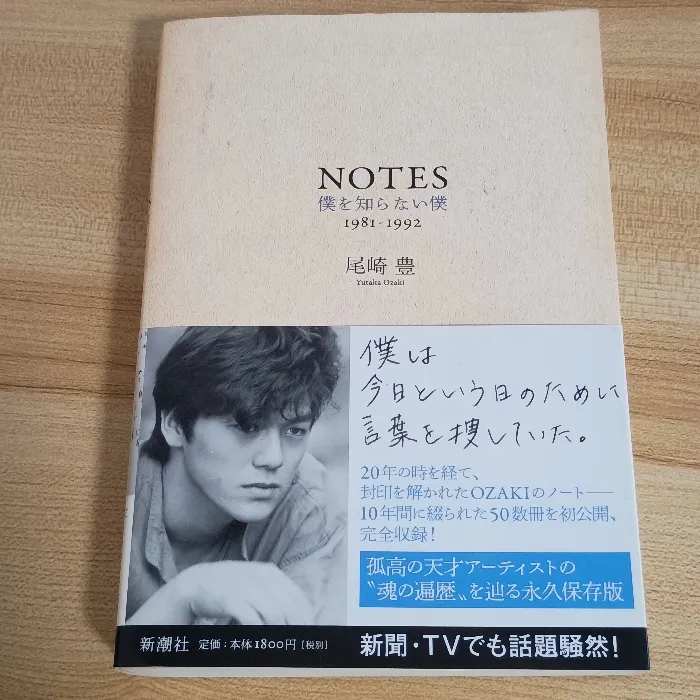 NOTES
僕を知らない僕
1981-1992
尾崎 豊
Yutaka Ozaki
僕は
今日という日のために
言葉を捜していた。
20年の時を経て、
封印を解かれたOZAKIのノート——
10年間に綴られた50数冊を初公開、
完全収録!
孤高の天才アーティストの
〝魂の遍歴〟を辿る永久保存版
新潮社 定価:本体1800円〔税別〕
新聞・TVでも話題騒然!